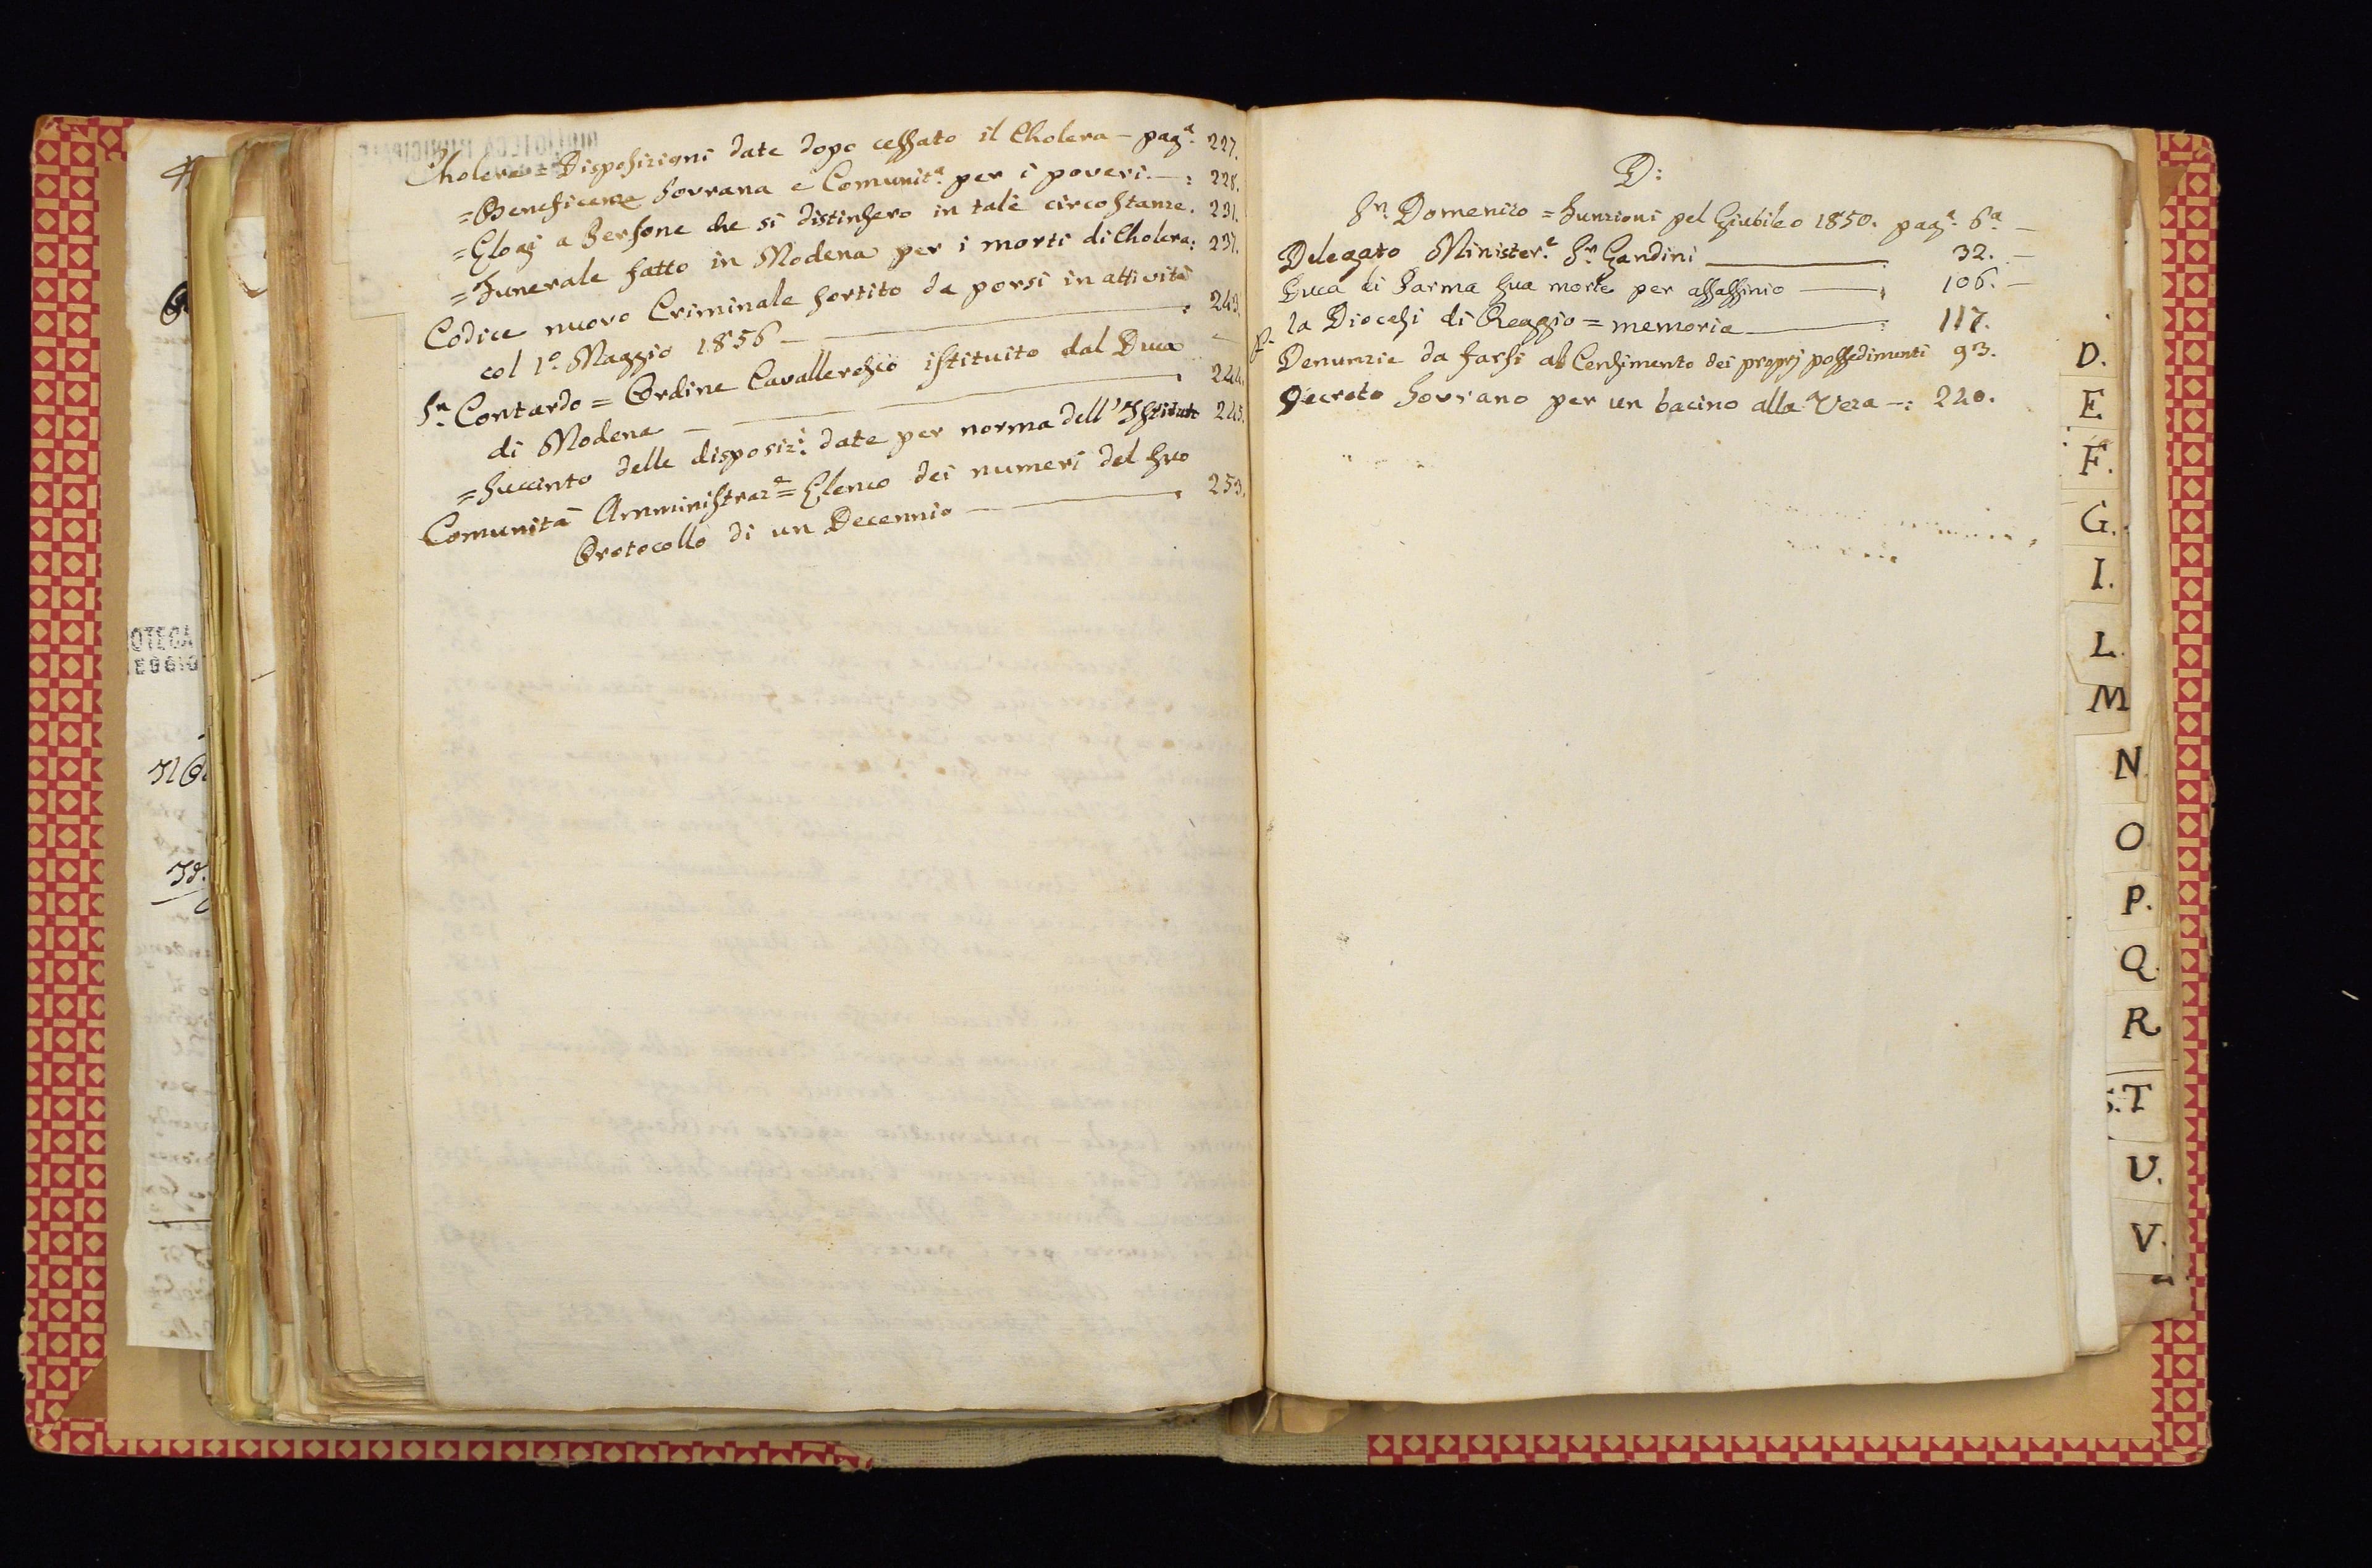 Cholera = Disposizioni date dopo cessato il Cholera – pag.ª 227.
= Beneficenze Sovrana e Comunit.ª per i poveri. — : 228.
= Elogi a Persone che si distinsero in tale circostanze. 231.
= Funerale fatto in Modena per i morti di Cholera: 237.
Codice nuovo Criminale sortito da porsi in attività
col 1º. Maggio 1856 — : 243.
Sn. Contardo = Ordine Cavalleresco istituito dal Duca
di Modena — 244.
= Succinto delle disposiz.i date per norma dell'Istituto 245.
Comunità Amministraz.e = Elenco dei numeri del suo
Protocollo di un Decennio — 253.
D:
Sn. Domenico = Funzioni pel Giubileo 1850. pag.ª 6.ª —
Delegato Minister.e Sr. Gandini — 32. —
Duca di Parma sua morte per assassinio — 106. —
la Diocesi di Reggio = memoria — : 117.
Denunzie da farsi al Censimento dei proprj possedimenti 93.
Decreto Sovrano per un bacino alla Vera — : 220.
D.
E
F.
G.
I.
L.
M
N
O
P.
Q.
R
S. T
U.
V.
OTECA
EGGIO